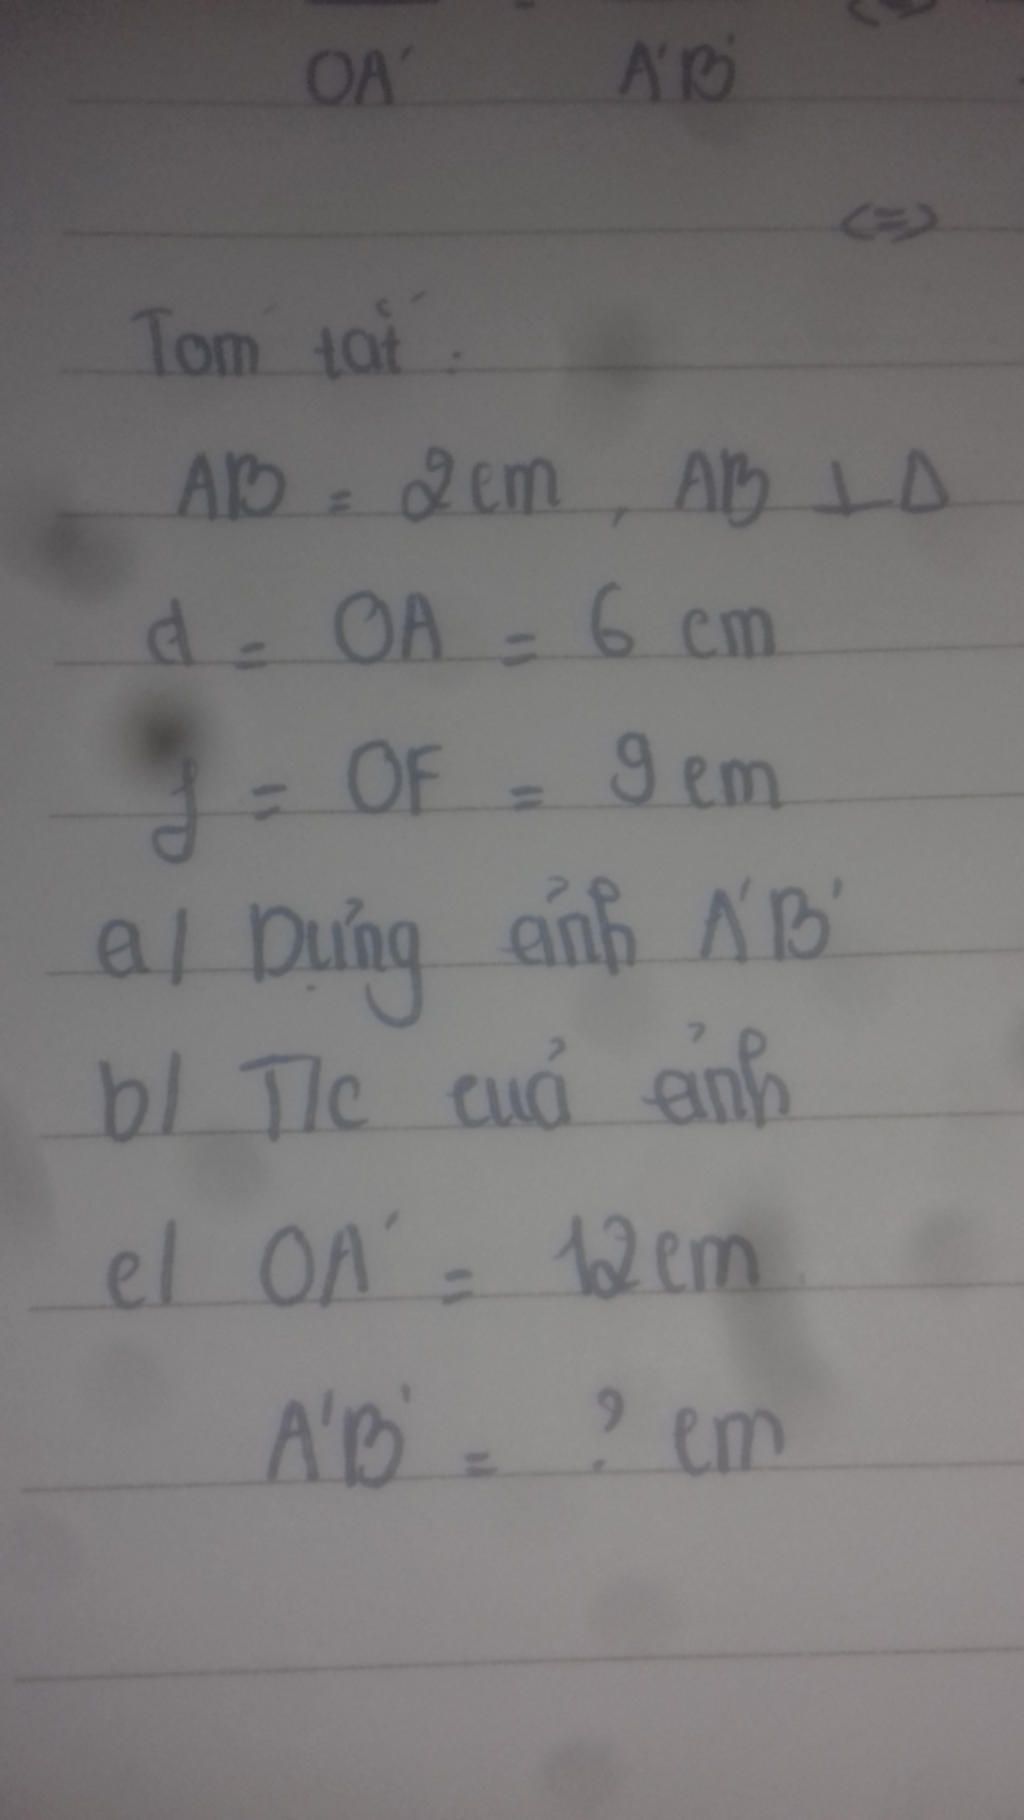 OA' A'B'
<=>
Tóm tắt:
AB = 2cm, AB ⊥ Δ
d = OA = 6 cm
f = OF = 9 cm
a/ Dựng ảnh A'B'
b/ T/c của ảnh
c/ OA' = 12cm
A'B' = ? cm